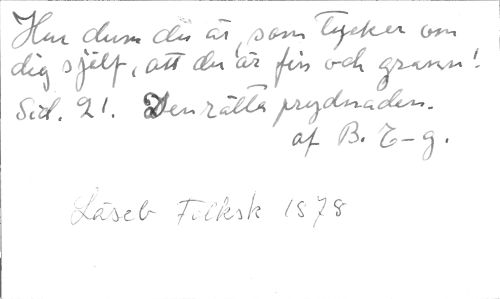 Hur dum du är, som tycker om
dig sjelf, att du är fin och grann!
Sid. 21. Den rätta prydnaden.
af B. E-g.
Läseb Folksk 1878